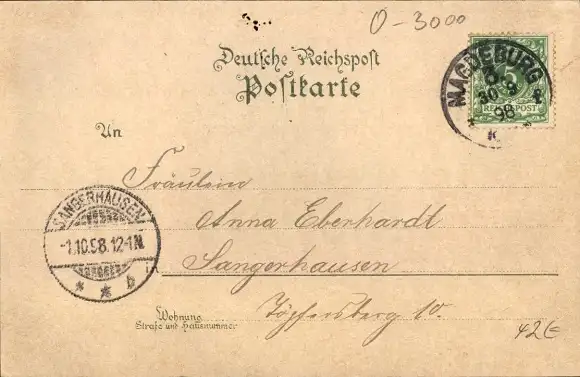 0-3000
Deutsche Reichspost
Postkarte
MAGDEBURG
5
30 9
98
K
5
REICHSPOST
An
Fräulein
Anna Eberhardt
SANGERHAUSEN
-1.10.98.12-1N.
* * b
in
Sangerhausen
Wohnung
Straße und Hausnummer
Töpfersberg 10.
42€